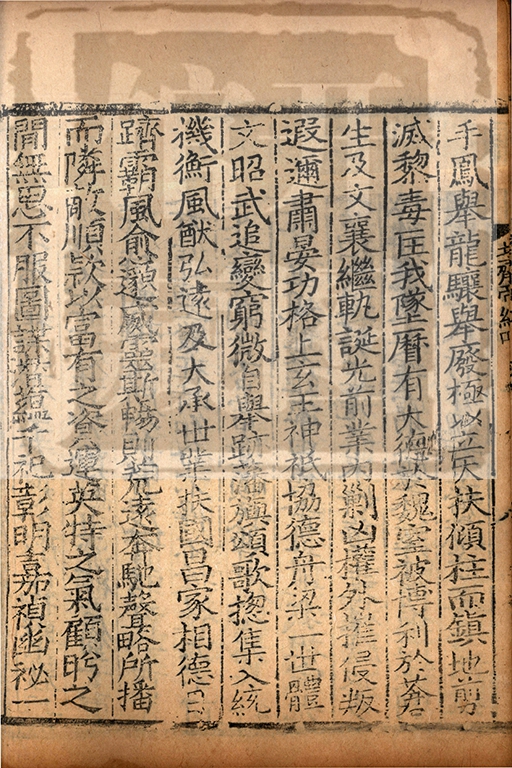 齊帝紀四
手鳳舉龍驤舉廢極以立天扶傾柱而鎮地剪
滅黎毒匡我墜曆有大德於魏室被博利於蒼
生及文襄繼軌誕光前業內剿凶權外摧侵叛
遐邇肅晏功格上玄王神祇協德舟梁一世體
文昭武追變窮微自舉跡藩旟頌歌揔集入統
機衡風猷弘遠及大承世業扶國昌家相德日
躋霸風愈邈威靈斯暢則荒遠奔馳聲略所播
而隣敵順款以富有之資運英特之氣顧眄之
間無思不服圖諜潛蘊千祀彰明嘉禎幽祕一